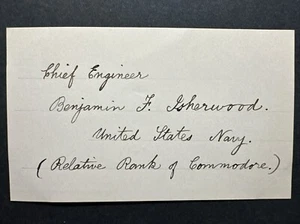 Chief Engineer
Benjamin F. Isherwood.
United States Navy.
(Relative Rank of Commodore.)